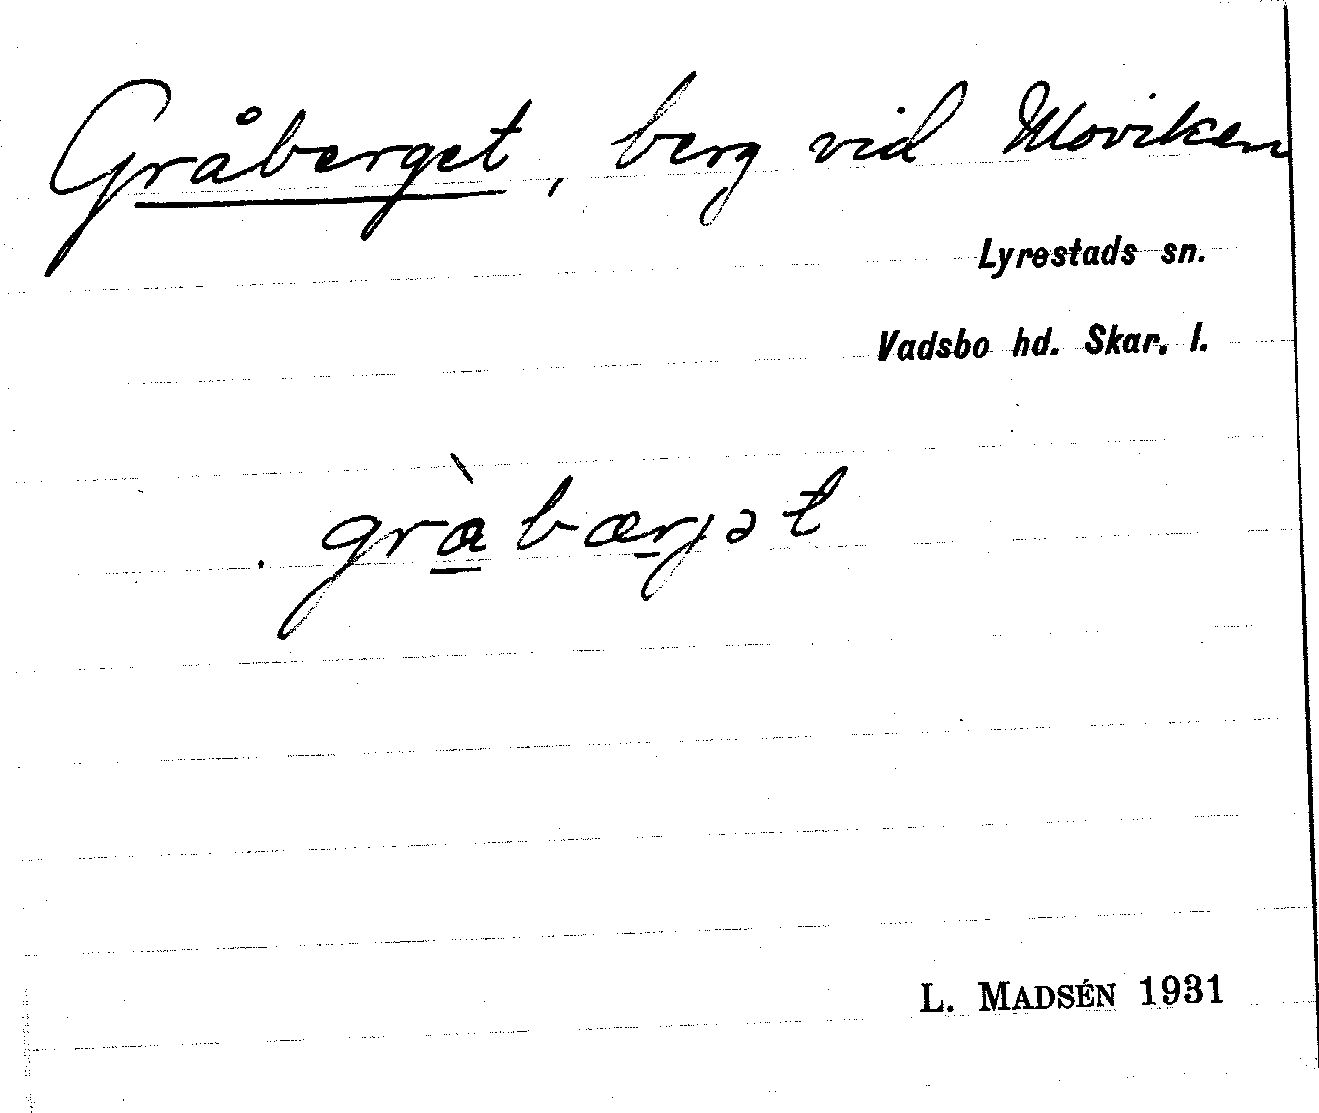 Gråberget, berg vid Moviken
Lyrestads sn.
Vadsbo hd. Skar. l.
grà̱bærjət
L. MADSÉN 1931